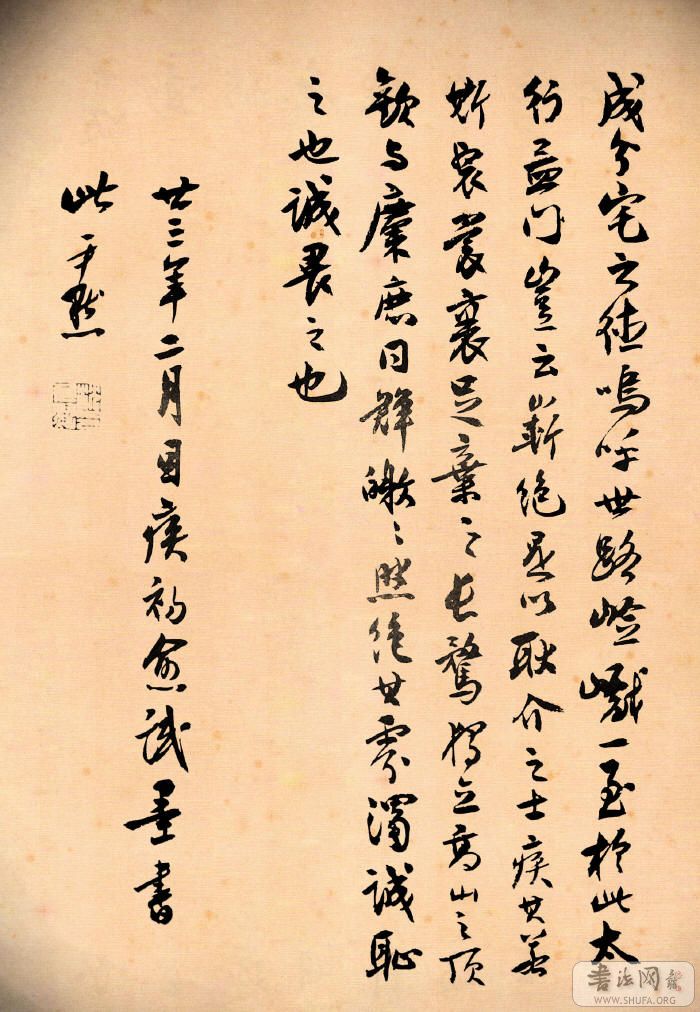 成分宅之德嗚呼世路嶮巇一至於此太
行孟門豈云嶄絶是以耿介之士疾其若
斯裂裳裹足棄之長騖獨立高山之頂
歡与麋鹿同群皦〻然絶其雰濁誠恥
之也誠畏之也
廿三年二月目疾初愈試墨書
此 尹默
書法网
WWW.SHUFA.ORG